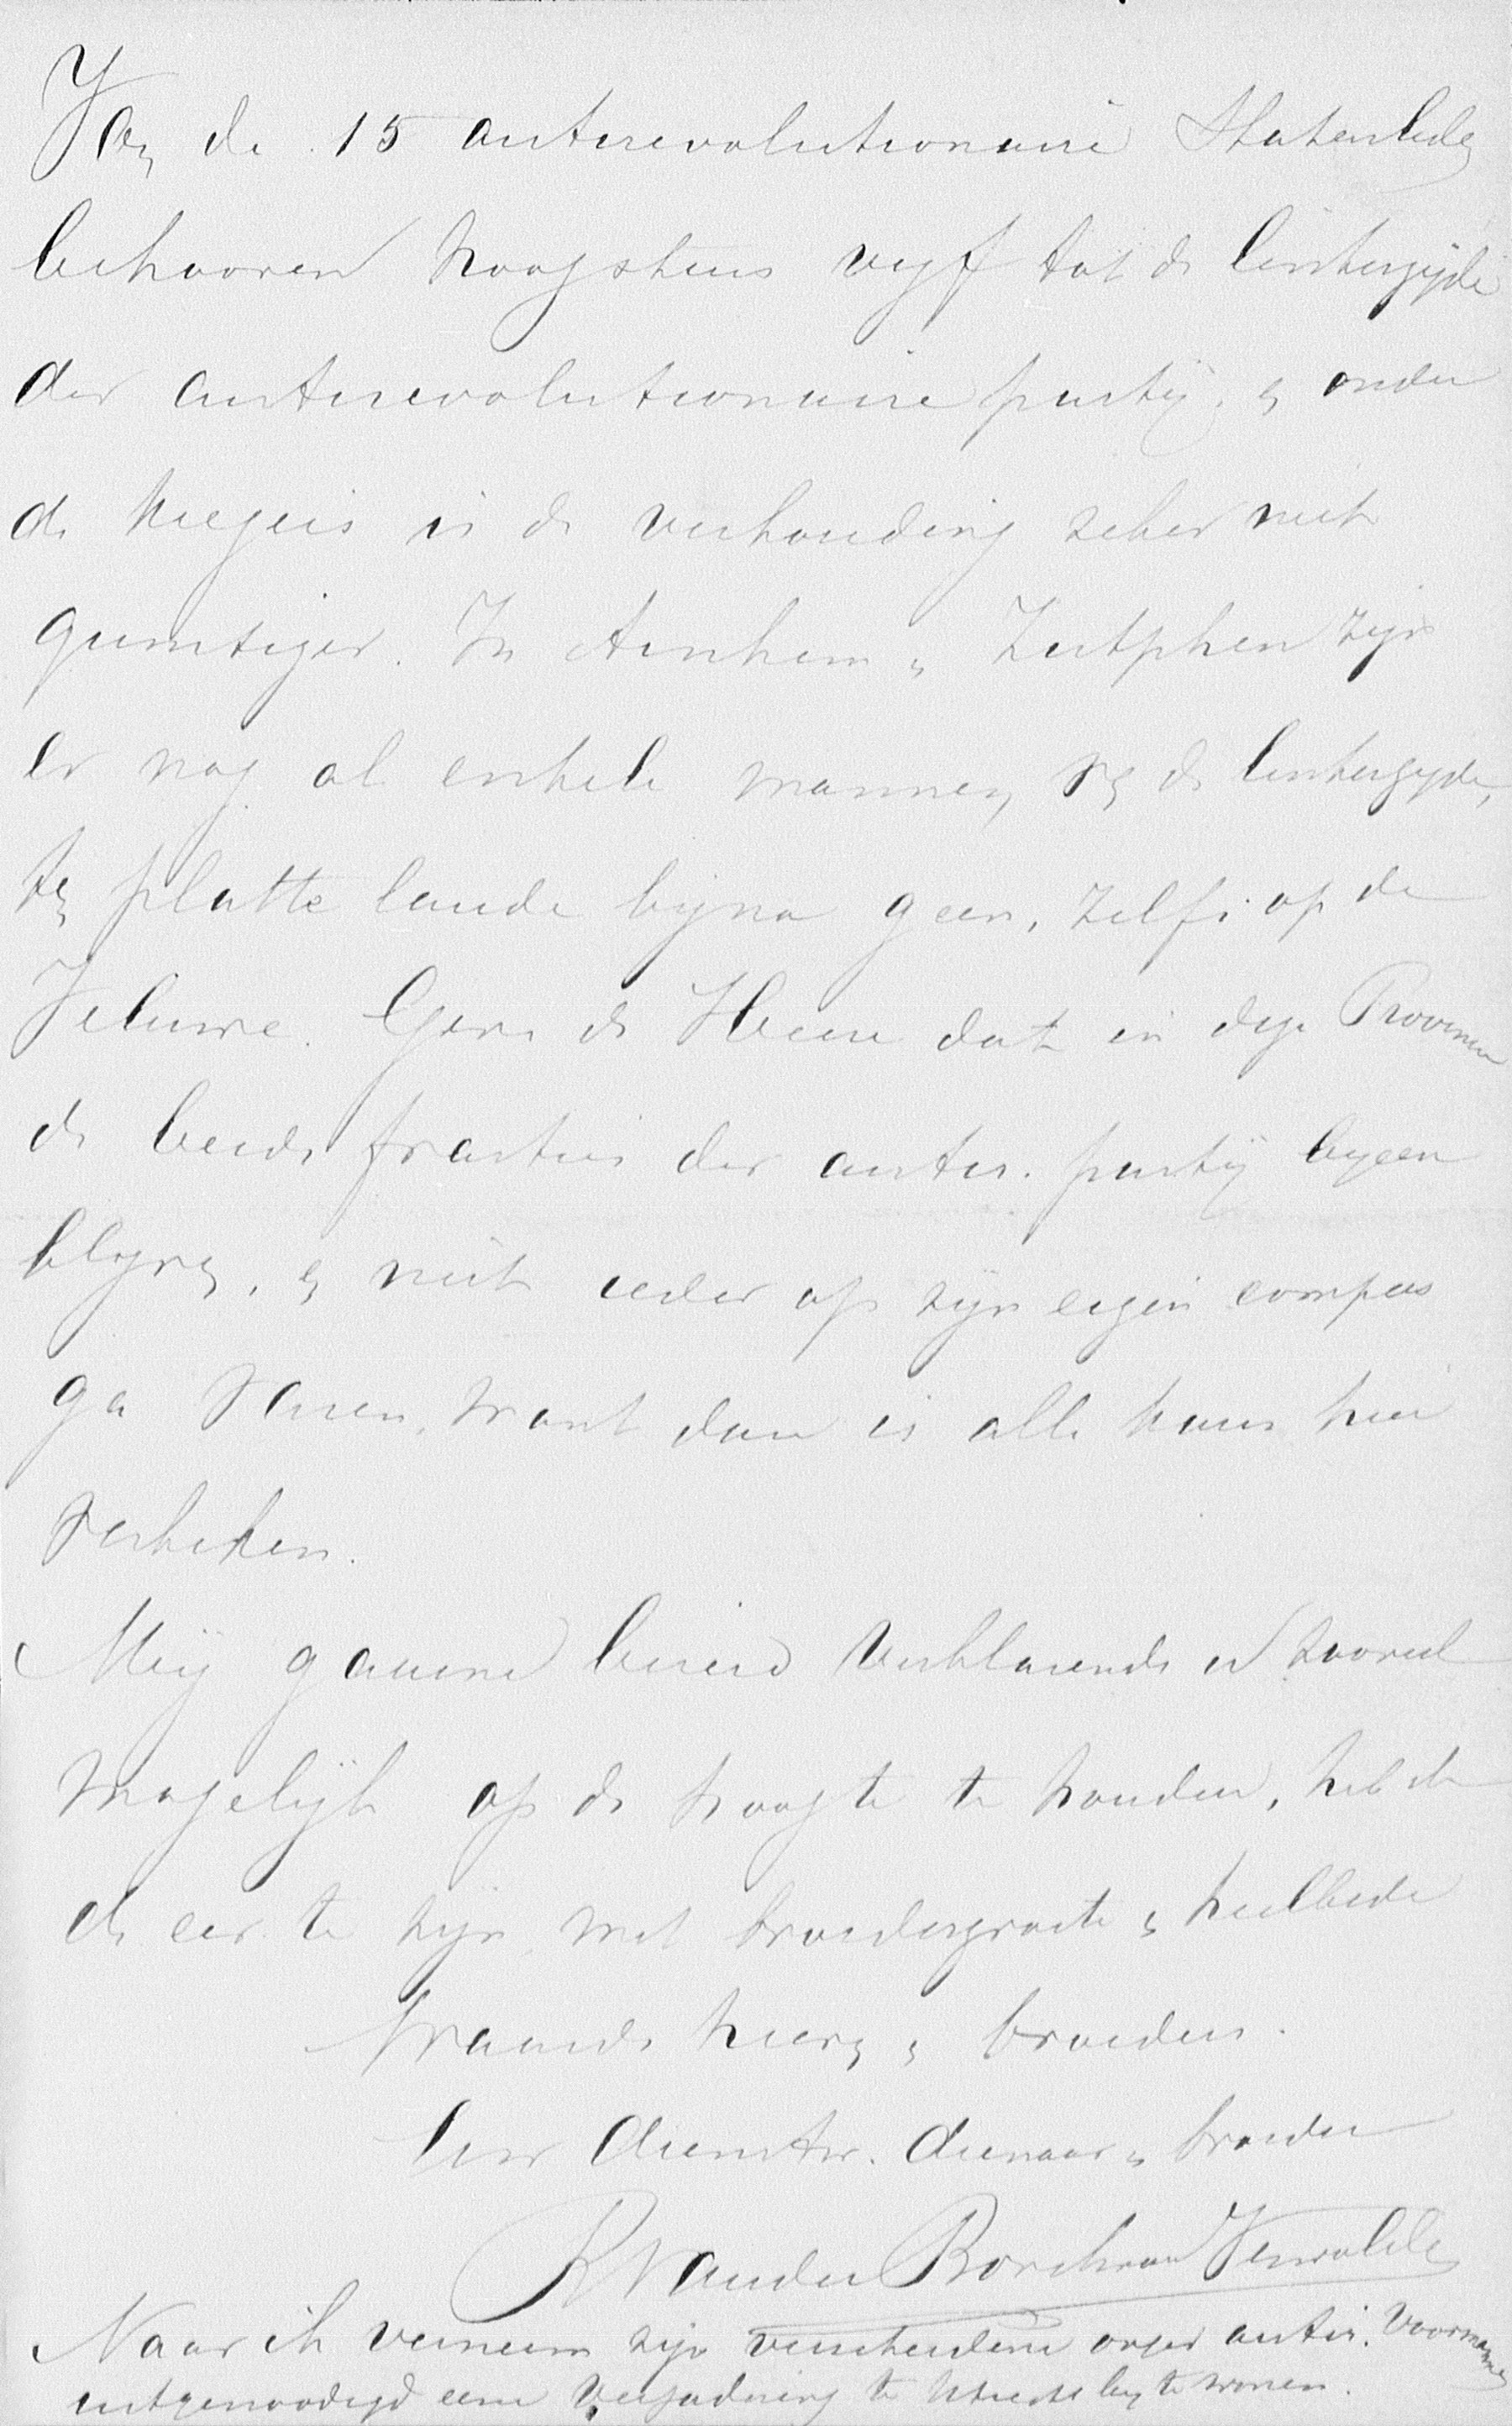 Van de 15 antirevolutionaire Statenleden
behooren hoogstens vijf tot de linkerzijde
der antirevolutionaire partij, en onder
de kiezers is de verhouding zeker niet
gunstiger. In Arnhem en Zutphen zijn
er nog al enkele mannen v/d de linkerzijde,
ten platte lande bijna geen, zelfs op de
Veluwe. Geve de Heere dat in deze Provincie
de beide fractiës der antir. partij bijeen
blijven, en niet ieder op zijn eigen compas
ga varen, want dan is alle kans hier
verkeken.
Mij gaarne bereid verklarende U zooveel
mogelijk op de hoogte te houden, heb ik
de eer te zijn met broedergroete en heilbede
Waarde heeren en broeders.
Uw dienstw. dienaar en broeder
R Van der Borch van Verwolde
Naar ik verneem zijn verscheidene onzer antir. Voormannen
uitgenoodigd eene Vergadering te Utrecht bij te wonen.